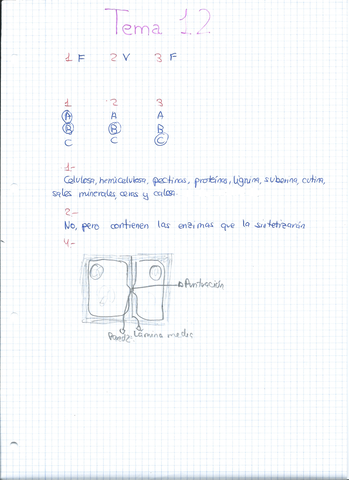 Tema 12
1 F 2 V 3 F
1 2 3
A A A
B B B
C C C
1-
Celulosa, hemicelulosa, pectinas, proteínas, lignina, suberina, cutina,
sales minerales, ceras y calosa.
2-
No, pero contienen las enzimas que la sintetizarán
4-
Puntuación
Pared. Lámina media